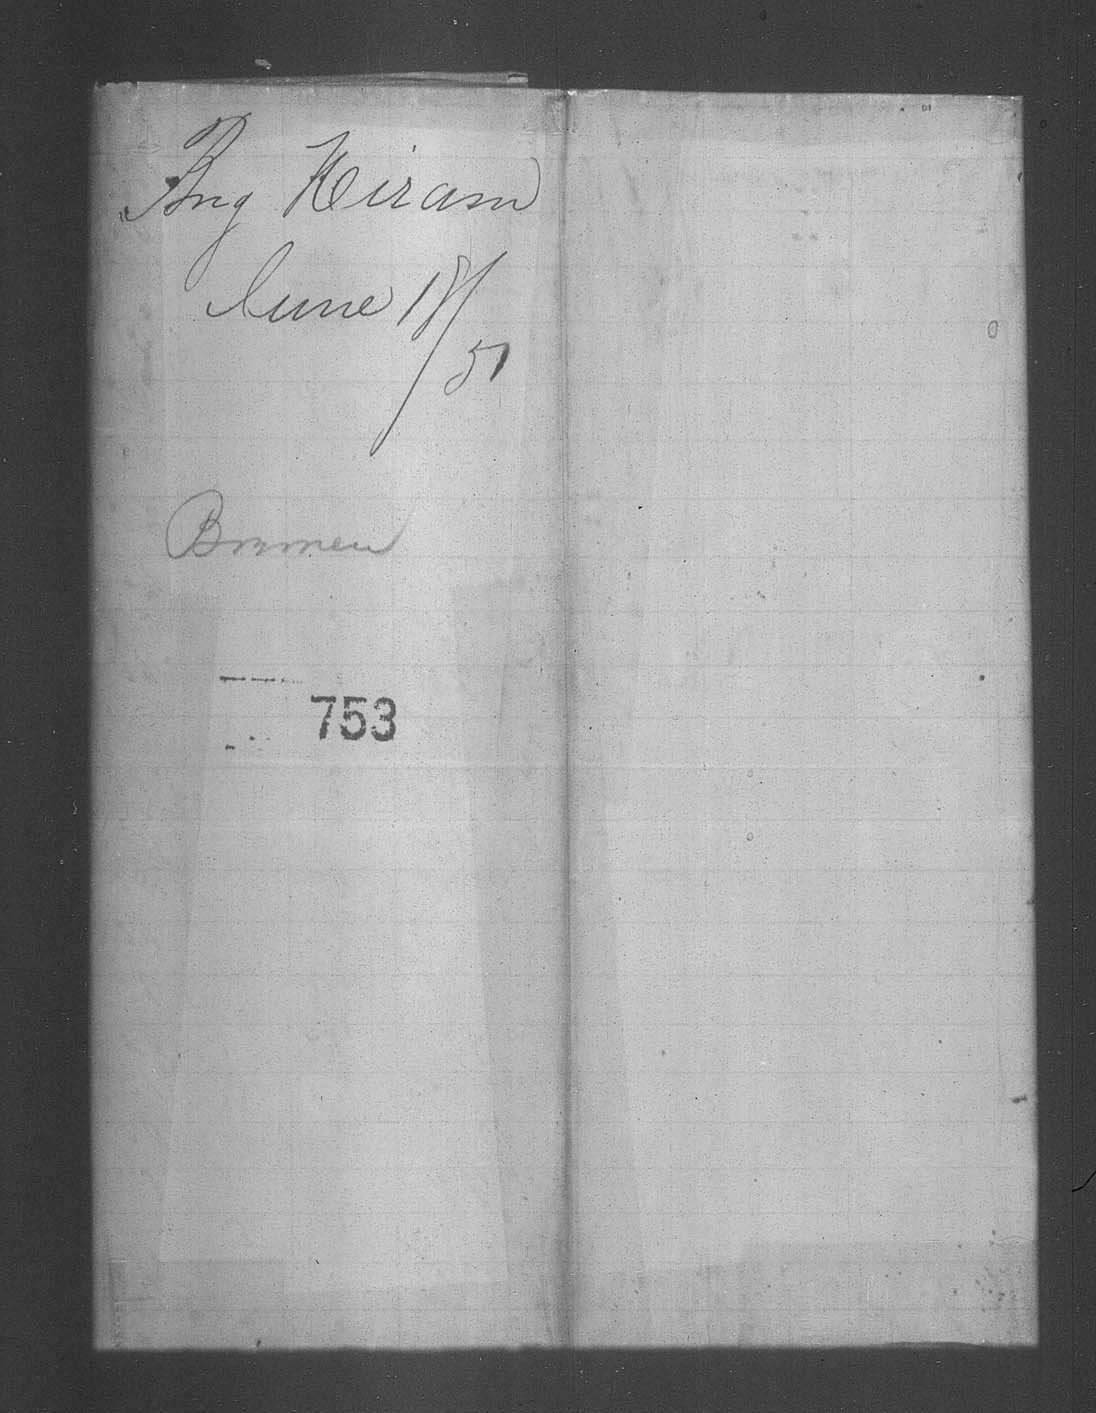 Brig Hiram
June 18/51
Bremen
753